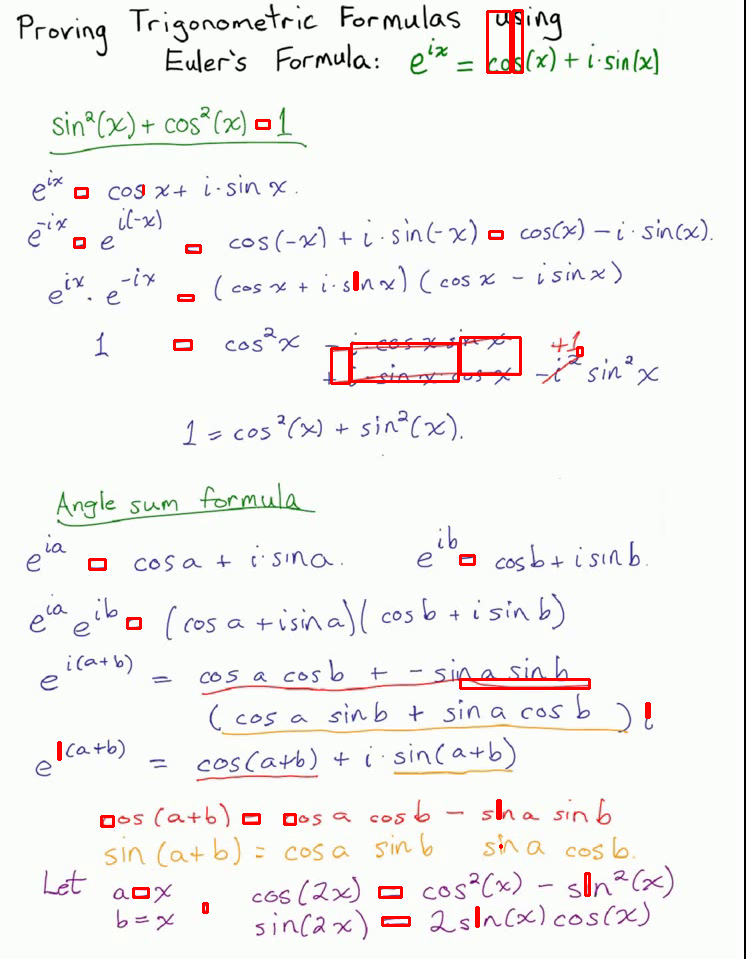 Proving Trigonometric Formulas using
Euler's Formula: e^{ix} = cos(x) + i·sin(x)
sin²(x) + cos²(x) = 1
e^{ix} = cos x + i·sin x.
e^{-ix} = e^{i(-x)} = cos(-x) + i·sin(-x) = cos(x) - i·sin(x).
e^{ix}·e^{-ix} = (cos x + i·sin x)(cos x - i sin x)
1 = cos²x - i·cos x sin x +1
+ i·sin x cos x -i² sin²x
1 = cos²(x) + sin²(x).
Angle sum formula
e^{ia} = cos a + i·sin a. e^{ib} = cos b + i sin b.
e^{ia} e^{ib} = (cos a + i sin a)(cos b + i sin b)
e^{i(a+b)} = cos a cos b + - sin a sin b
(cos a sin b + sin a cos b) i
e^{i(a+b)} = cos(a+b) + i·sin(a+b)
cos(a+b) = cos a cos b - sin a sin b
sin(a+b) = cos a sin b sin a cos b.
Let a=x cos(2x) = cos²(x) - sin²(x)
b=x sin(2x) = 2 sin(x) cos(x)